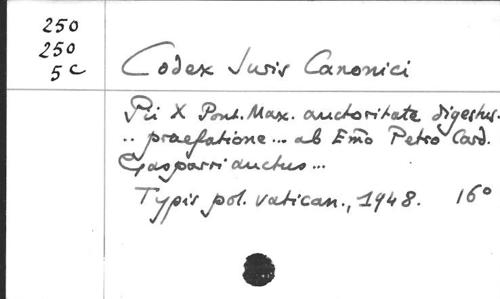 250
250
5c
Codex Juris Canonici
Pii X Pont. Max. auctoritate digestus.
.. praefatione... ab Emo Petro Card.
Gasparri auctus...
Typis pol. vatican., 1948. 16°